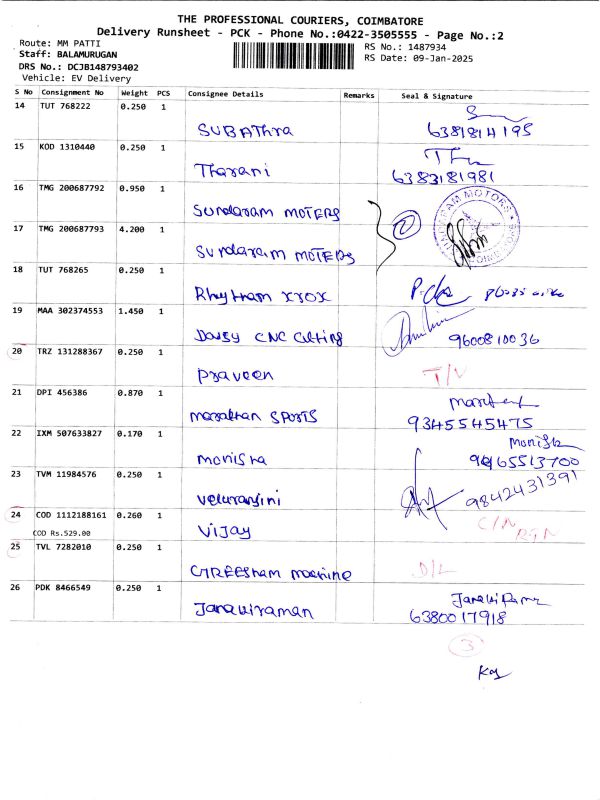 THE PROFESSIONAL COURIERS, COIMBATORE
Delivery Runsheet - PCK - Phone No.:0422-3505555 - Page No.:2
Route: MM PATTI
Staff: BALAMURUGAN
DRS No.: DCJB148793402
Vehicle: EV Delivery
RS No.: 1487934
RS Date: 09-Jan-2025
S No Consignment No Weight PCS Consignee Details Remarks Seal & Signature
14 TUT 768222 0.250 1
SUBAthra 6381814195
15 KOD 1310440 0.250 1
Tharani 6383181981
16 TMG 200687792 0.950 1
Sundaram MOTERS
2
17 TMG 200687793 4.200 1
Sundaram MOTERS
18 TUT 768265 0.250 1
Rhytham xrox
19 MAA 302374553 1.450 1
Daisy CNC Cutting 9600810036
20 TRZ 131288367 0.250 1
Praveen T/N
21 DPI 456386 0.870 1
marathan SPORTS 9345545475
22 IXM 507633827 0.170 1
monisha
23 TVM 11984576 0.250 1
veluranjini 9842431391
24 COD 1112188161 0.260 1
COD Rs.529.00
Vijay C/N RTN
25 TVL 7282010 0.250 1
GREESham machine D/L
26 PDK 8466549 0.250 1
Janakiraman 6380017918
3